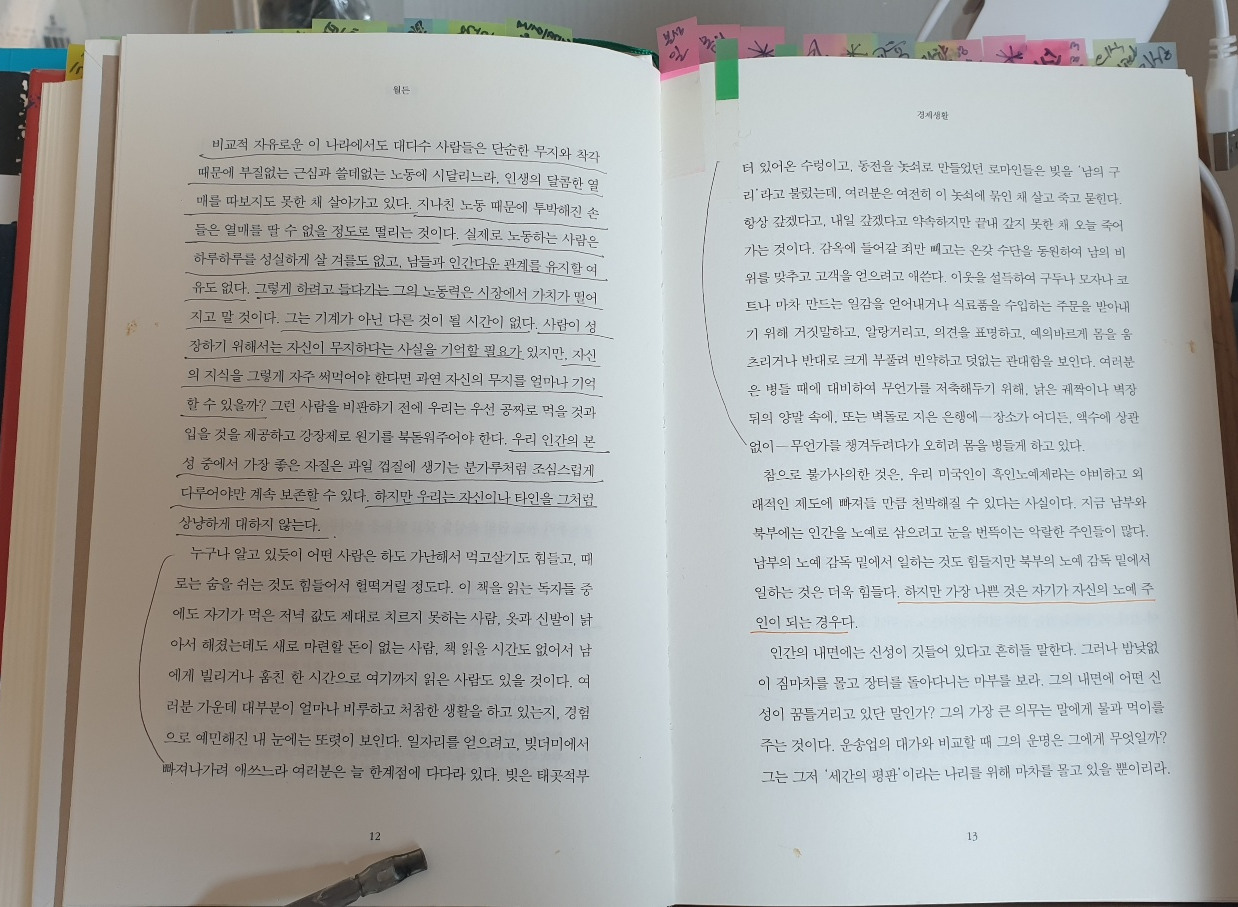 월든
비교적 자유로운 이 나라에서도 대다수 사람들은 단순한 무지와 착각
때문에 부질없는 근심과 쓸데없는 노동에 시달리느라, 인생의 달콤한 열
매를 따보지도 못한 채 살아가고 있다. 지나친 노동 때문에 투박해진 손
들은 열매를 딸 수 없을 정도로 떨리는 것이다. 실제로 노동하는 사람은
하루하루를 성실하게 살 겨를도 없고, 남들과 인간다운 관계를 유지할 여
유도 없다. 그렇게 하려고 들다가는 그의 노동력은 시장에서 가치가 떨어
지고 말 것이다. 그는 기계가 아닌 다른 것이 될 시간이 없다. 사람이 성
장하기 위해서는 자신이 무지하다는 사실을 기억할 필요가 있지만, 자신
의 지식을 그렇게 자주 써먹어야 한다면 과연 자신의 무지를 얼마나 기억
할 수 있을까? 그런 사람을 비판하기 전에 우리는 우선 공짜로 먹을 것과
입을 것을 제공하고 강장제로 원기를 북돋워주어야 한다. 우리 인간의 본
성 중에서 가장 좋은 자질은 과일 껍질에 생기는 분가루처럼 조심스럽게
다루어야만 계속 보존할 수 있다. 하지만 우리는 자신이나 타인을 그처럼
상냥하게 대하지 않는다.
누구나 알고 있듯이 어떤 사람은 하도 가난해서 먹고살기도 힘들고, 때
로는 숨을 쉬는 것도 힘들어서 헐떡거릴 정도다. 이 책을 읽는 독자들 중
에도 자기가 먹은 저녁 값도 제대로 치르지 못하는 사람, 옷과 신발이 낡
아서 해졌는데도 새로 마련할 돈이 없는 사람, 책 읽을 시간도 없어서 남
에게 빌리거나 훔친 한 시간으로 여기까지 읽은 사람도 있을 것이다. 여
러분 가운데 대부분이 얼마나 비루하고 처참한 생활을 하고 있는지, 경험
으로 예민해진 내 눈에는 또렷이 보인다. 일자리를 얻으려고, 빚더미에서
빠져나가려 애쓰느라 여러분은 늘 한계점에 다다라 있다. 빚은 태곳적부
12
경제생활
터 있어온 수렁이고, 동전을 놋쇠로 만들었던 로마인들은 빚을 '남의 구
리'라고 불렀는데, 여러분은 여전히 이 놋쇠에 묶인 채 살고 죽고 묻힌다.
항상 갚겠다고, 내일 갚겠다고 약속하지만 끝내 갚지 못한 채 오늘 죽어
가는 것이다. 감옥에 들어갈 죄만 빼고는 온갖 수단을 동원하여 남의 비
위를 맞추고 고객을 얻으려고 애쓴다. 이웃을 설득하여 구두나 모자나 코
트나 마차 만드는 일감을 얻어내거나 식료품을 수입하는 주문을 받아내
기 위해 거짓말하고, 알랑거리고, 의견을 표명하고, 예의바르게 몸을 움
츠리거나 반대로 크게 부풀려 빈약하고 덧없는 관대함을 보인다. 여러분
은 병들 때에 대비하여 무언가를 저축해두기 위해, 낡은 궤짝이나 벽장
뒤의 양말 속에, 또는 벽돌로 지은 은행에—장소가 어디든, 액수에 상관
없이—무언가를 챙겨두려다가 오히려 몸을 병들게 하고 있다.
참으로 불가사의한 것은, 우리 미국인이 흑인노예제라는 야비하고 외
래적인 제도에 빠져들 만큼 천박해질 수 있다는 사실이다. 지금 남부와
북부에는 인간을 노예로 삼으려고 눈을 번뜩이는 악랄한 주인들이 많다.
남부의 노예 감독 밑에서 일하는 것도 힘들지만 북부의 노예 감독 밑에서
일하는 것은 더욱 힘들다. 하지만 가장 나쁜 것은 자기가 자신의 노예 주
인이 되는 경우다.
인간의 내면에는 신성이 깃들어 있다고 흔히들 말한다. 그러나 밤낮없
이 짐마차를 몰고 장터를 돌아다니는 마부를 보라. 그의 내면에 어떤 신
성이 꿈틀거리고 있단 말인가? 그의 가장 큰 의무는 말에게 물과 먹이를
주는 것이다. 운송업의 대가와 비교할 때 그의 운명은 그에게 무엇일까?
그는 그저 '세간의 평판'이라는 나리를 위해 마차를 몰고 있을 뿐이리라.
13